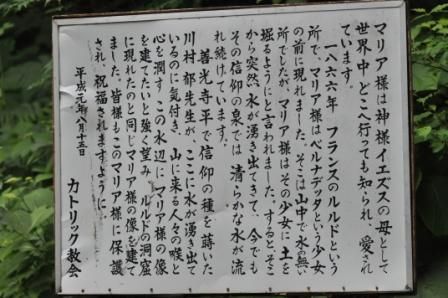 マリア様は神様イエズスの母として
世界中、どこへ行っても知られ、愛され
ています。
一八六六年 フランスのルルドという
所で、マリア様はベルナデッタという少女
の前に現れました。そこは山中で水の無い
所でしたが、マリア様はその少女に土を
掘るようにと言われました。すると、そこ
から突然、水が湧き出てきて、今でも
その信仰の泉では、清らかな水が流
れ続けています。
善光寺平で信仰の種を蒔いた
川村郁先生が、ここに水が湧き出て
いるのに気付き、山に来る人々の喉と
心を潤す、この水辺に、マリア様の像
を建てたいと強く望み、ルルドの洞窟
に現れたのと同じマリア様の像を建て
ました。皆様もこのマリア様に保護
され、祝福されますように…。
平成元年八月十五日
カトリック教会